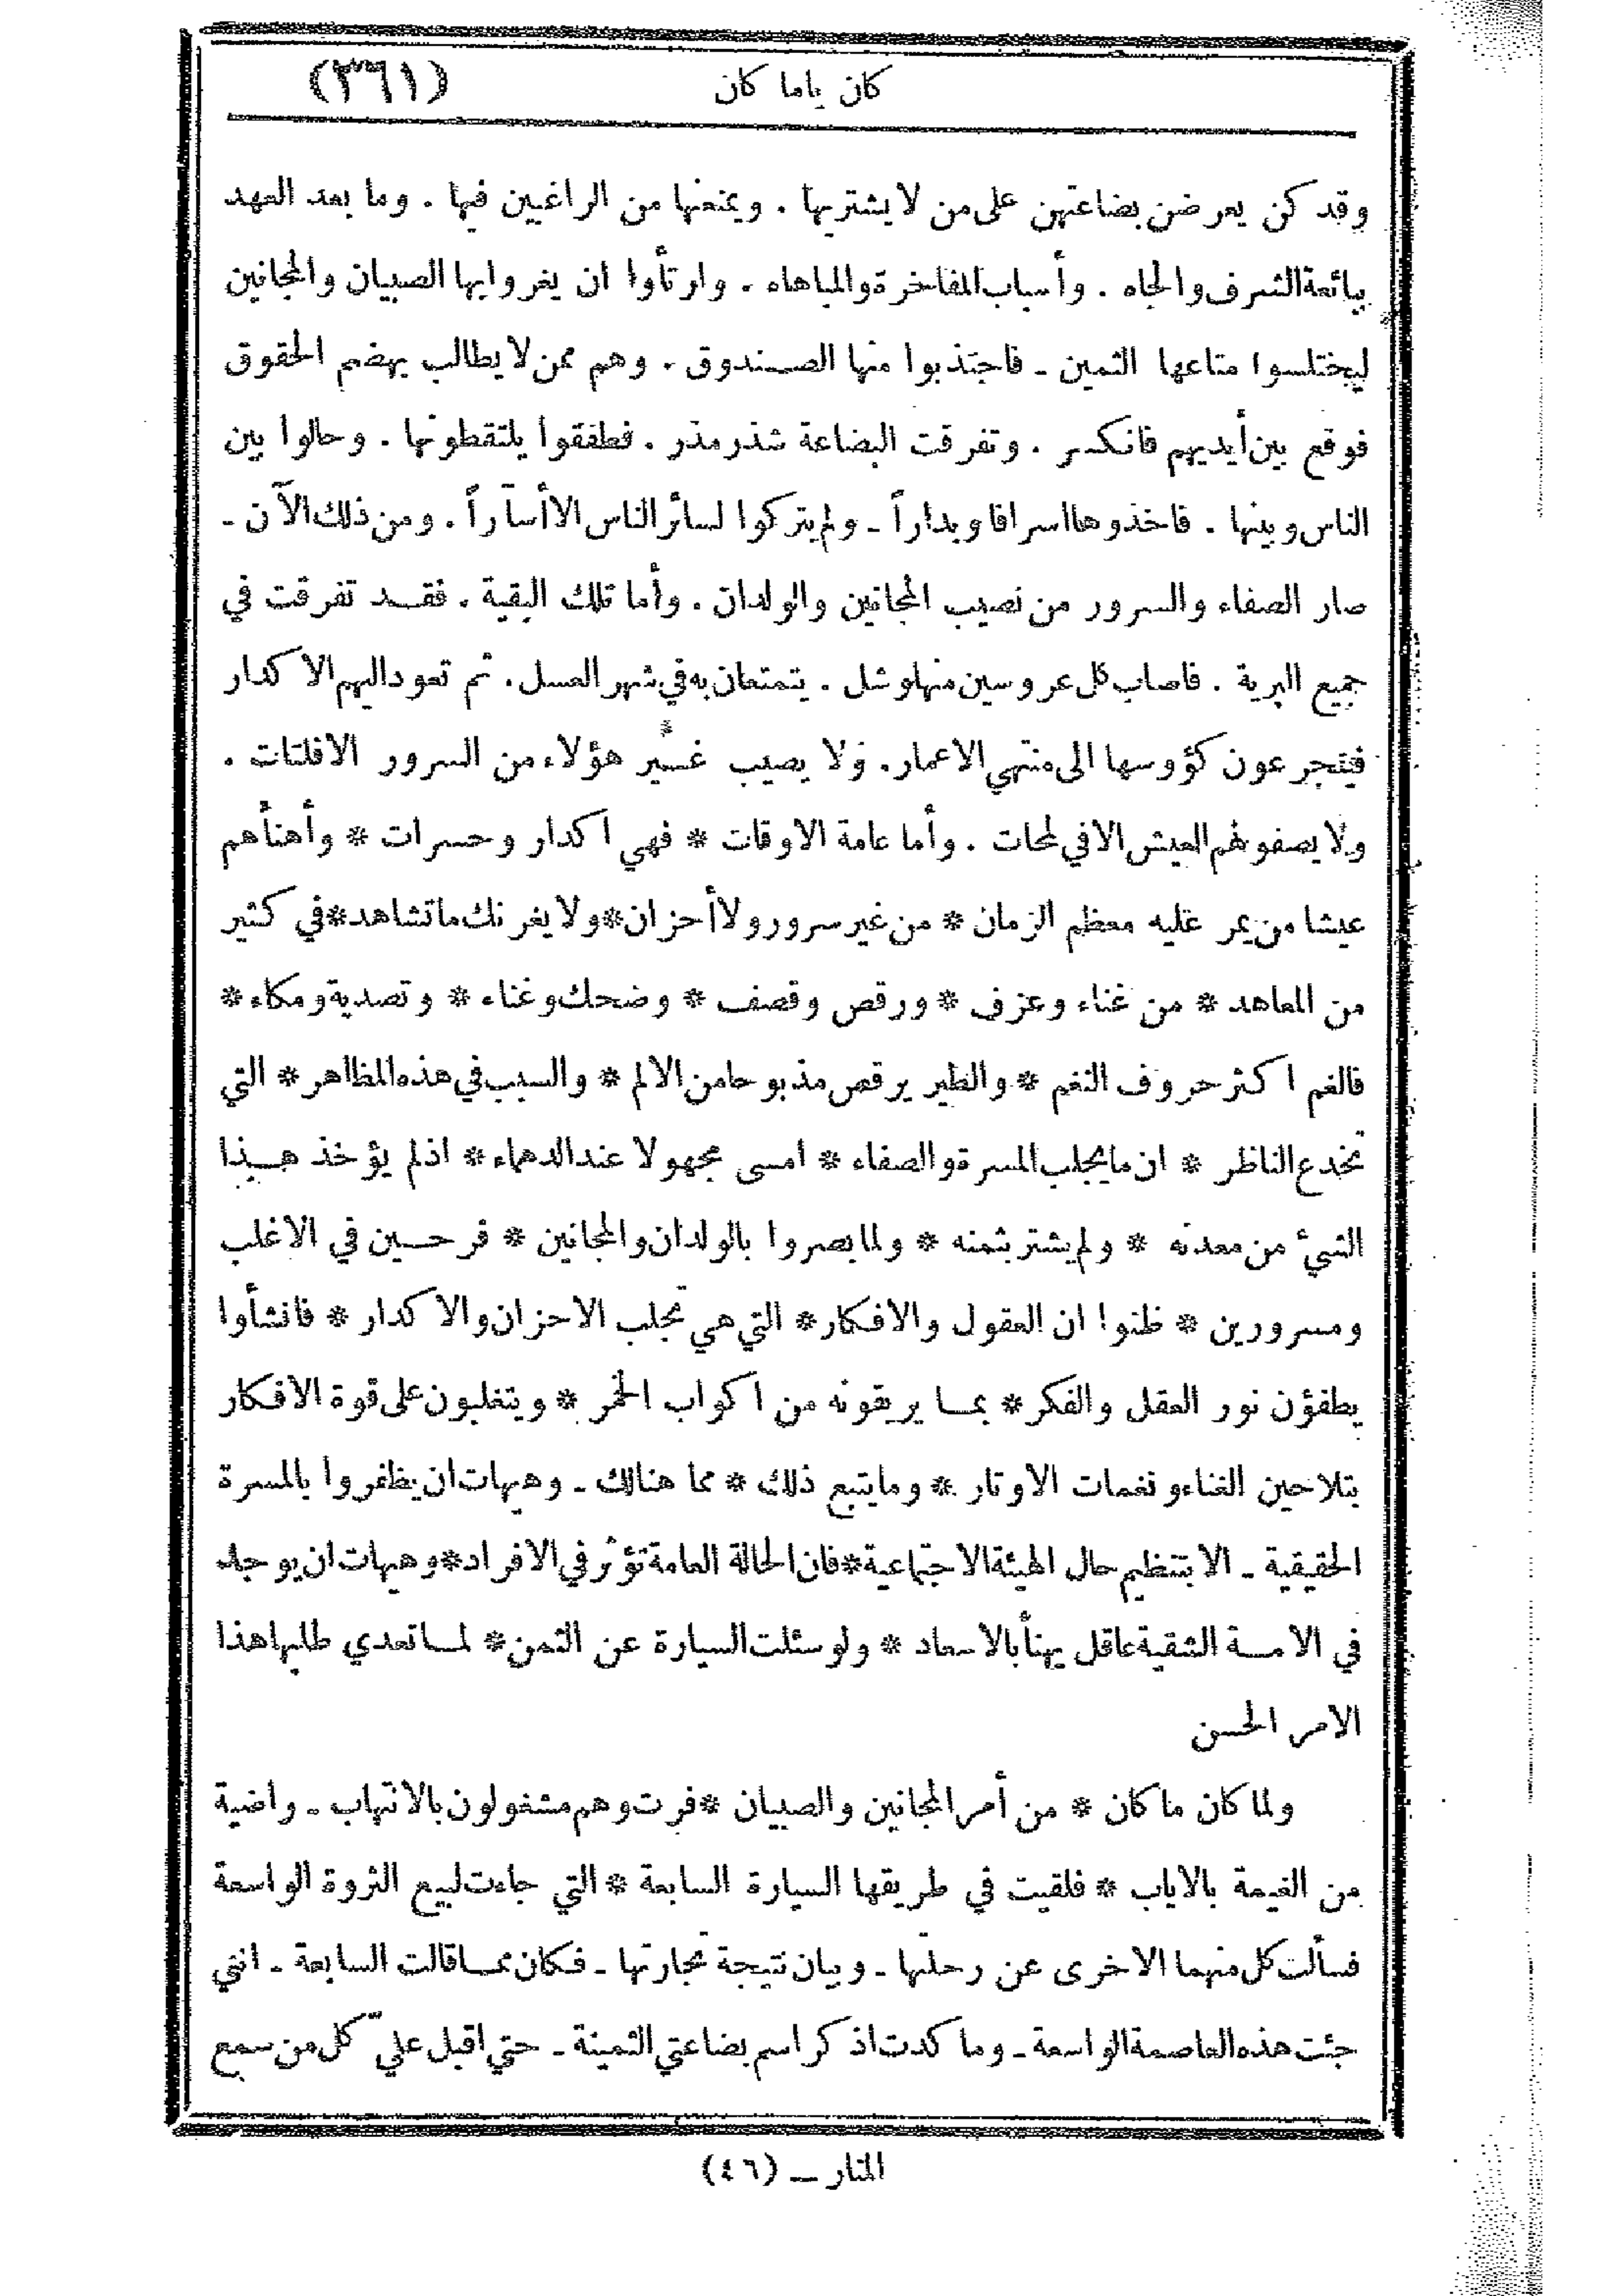 (٣٦١) كان ياما كان
وقد كن يعرضن بضاعتهن على من لا يشتريها . ويمنعنها من الراغبين فيها . وما بعد العهد
ببائعة الشرف والجاه . وأسباب المفاخرة والمباهاه . وارتأوا ان يغروا بها الصبيان والمجانين
ليختلسوا متاعها الثمين ـ فاجتذبوا منها الصندوق . وهم ممن لا يطالب بهضم الحقوق
فوقع بين أيديهم فانكسر . وتفرقت البضاعة شذر مذر . فطفقوا يلتقطونها . وحالوا بين
الناس وبينها . فاخذوها اسرافا وبداراً ـ ولم يتركوا لسائر الناس الا أسآراً . ومن ذلك الآن ـ
صار الصفاء والسرور من نصيب المجانين والولدان . وأما تلك البقية . فقد تفرقت في
جميع البرية . فاصاب كل عروسين منها وشل . يتمتعان به في شهر العسل . ثم تعود اليهم الاكدار
فيتجرعون كؤوسها الى منتهى الاعمار . ولا يصيب غير هؤلاء من السرور الافلتات .
ولا يصفو لهم العيش الا في لمحات . وأما عامة الاوقات * فهي اكدار وحسرات * وأهنأهم
عيشا من يمر عليه معظم الزمان * من غير سرور ولا أحزان * ولا يغرنك ما تشاهد * في كثير
من المعاهد * من غناء وعزف * ورقص وقصف * وضحك وغناء * وتصدية ومكاء *
فالغم اكثر حروف النغم * والطير يرقص مذبوحا من الالم * والسبب في هذه المظاهر * التي
تخدع الناظر * ان ما يجلب المسرة والصفاء * امسى مجهولا عند الدهماء * اذ لم يؤخذ هذا
الشيء من معدنه * ولم يشتر بثمنه * ولما بصروا بالولدان والمجانين * فرحين في الاغلب
ومسرورين * ظنوا ان العقول والافكار * التي هي تجلب الاحزان والاكدار * فانشأوا
يطفؤن نور العقل والفكر * بما يريقونه من اكواب الخمر * ويتغلبون على قوة الافكار
بتلاحين الغناء ونغمات الاوتار * وما يتبع ذلك * مما هنالك ـ وهيهات ان يظفروا بالمسرة
الحقيقية ـ الا بتنظيم حال الهيئة الاجتماعية * فان الحالة العامة تؤثر في الافراد * وهيهات ان يوجد
في الامة الشقية عاقل يهنأ بالاسعاد * ولو سئلت السيارة عن الثمن * لما تعدي طلبها هذا
الامر الحسن
ولما كان ما كان * من أمر المجانين والصبيان * فرت وهم مشغولون بالانتهاب ـ واضية
من الغيمة بالاياب * فلقيت في طريقها السيارة السابعة * التي جاءت لبيع الثروة الواسعة
فسألت كل منهما الاخرى عن رحلتها ـ وبيان نتيجة تجارتها ـ فكان مما قالت السابعة ـ انني
جئت هذه العاصمة الواسعة ـ وما كدت اذكر اسم بضاعتي الثمينة ـ حتي اقبل عليّ كل من سمع
المنار ــ (٤٦)